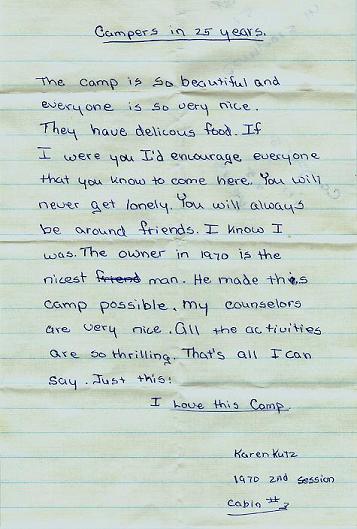 Campers in 25 years.
The camp is so beautiful and
everyone is so very nice.
They have delicous food. If
I were you I'd encourage everyone
that you know to come here. You will
never get lonely. You will always
be around friends. I know I
was. The owner in 1970 is the
nicest friend man. He made this
camp possible. My counselors
are very nice. All the activities
are so thrilling. That's all I can
say. Just this:
I Love this Camp.
Karen Kutz
1970 2nd session
Cabin #2